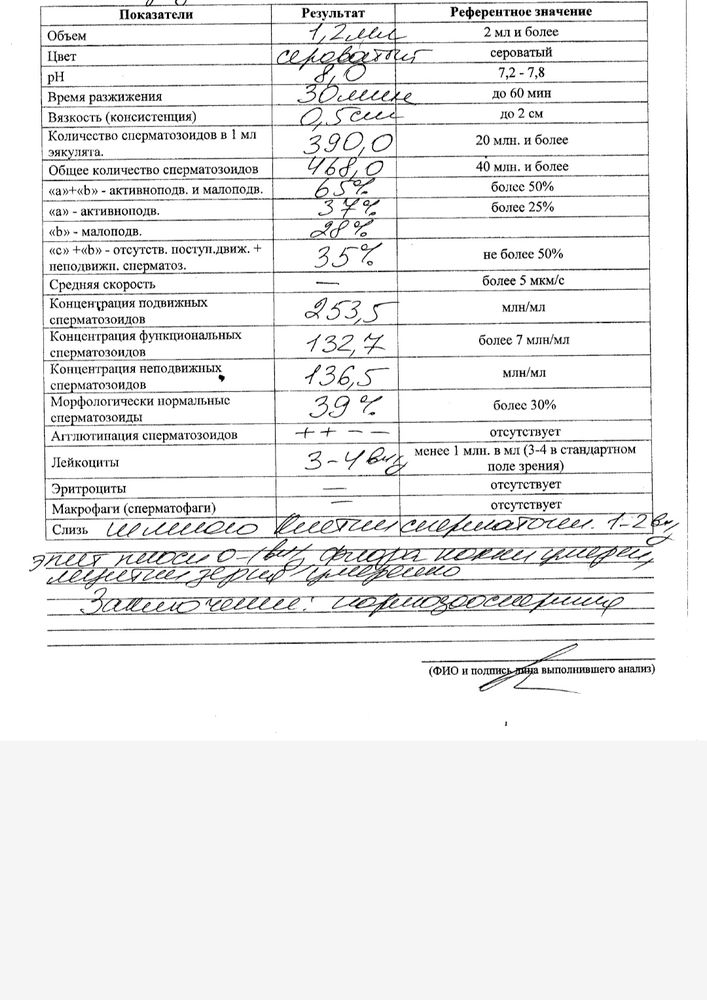 Показатели Результат Референтное значение
Объем 1,2 мл 2 мл и более
Цвет сероватый сероватый
pH 8,0 7,2 - 7,8
Время разжижения 30 мин до 60 мин
Вязкость (консистенция) 0,5 см до 2 см
Количество сперматозоидов в 1 мл
эякулята. 390,0 20 млн. и более
Общее количество сперматозоидов 468,0 40 млн. и более
«a»+«b» - активноподв. и малоподв. 65% более 50%
«a» - активноподв. 37% более 25%
«b» - малоподв. 28%
«c» +«b» - отсутств. поступ.движ. +
неподвижн. сперматоз. 35% не более 50%
Средняя скорость — более 5 мкм/с
Концентрация подвижных
сперматозоидов 253,5 млн/мл
Концентрация функциональных
сперматозоидов 132,7 более 7 млн/мл
Концентрация неподвижных
сперматозоидов 136,5 млн/мл
Морфологически нормальные
сперматозоиды 39% более 30%
Агглютинация сперматозоидов ++ – – отсутствует
Лейкоциты 3-4 в п/з менее 1 млн. в мл (3-4 в стандартном
поле зрения)
Эритроциты — отсутствует
Макрофаги (сперматофаги) — отсутствует
Слизь немного Клетки сперматоген. 1-2 в п/з
эпит плоский 0-1 в п/з, флора кокки умерен,
лецитин зерна умеренно
Заключение: нормозооспермия
(ФИО и подпись лица выполнившего анализ)